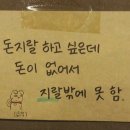 돈지랄 하고 싶은데
돈이 없어서
지랄밖에 못 함.